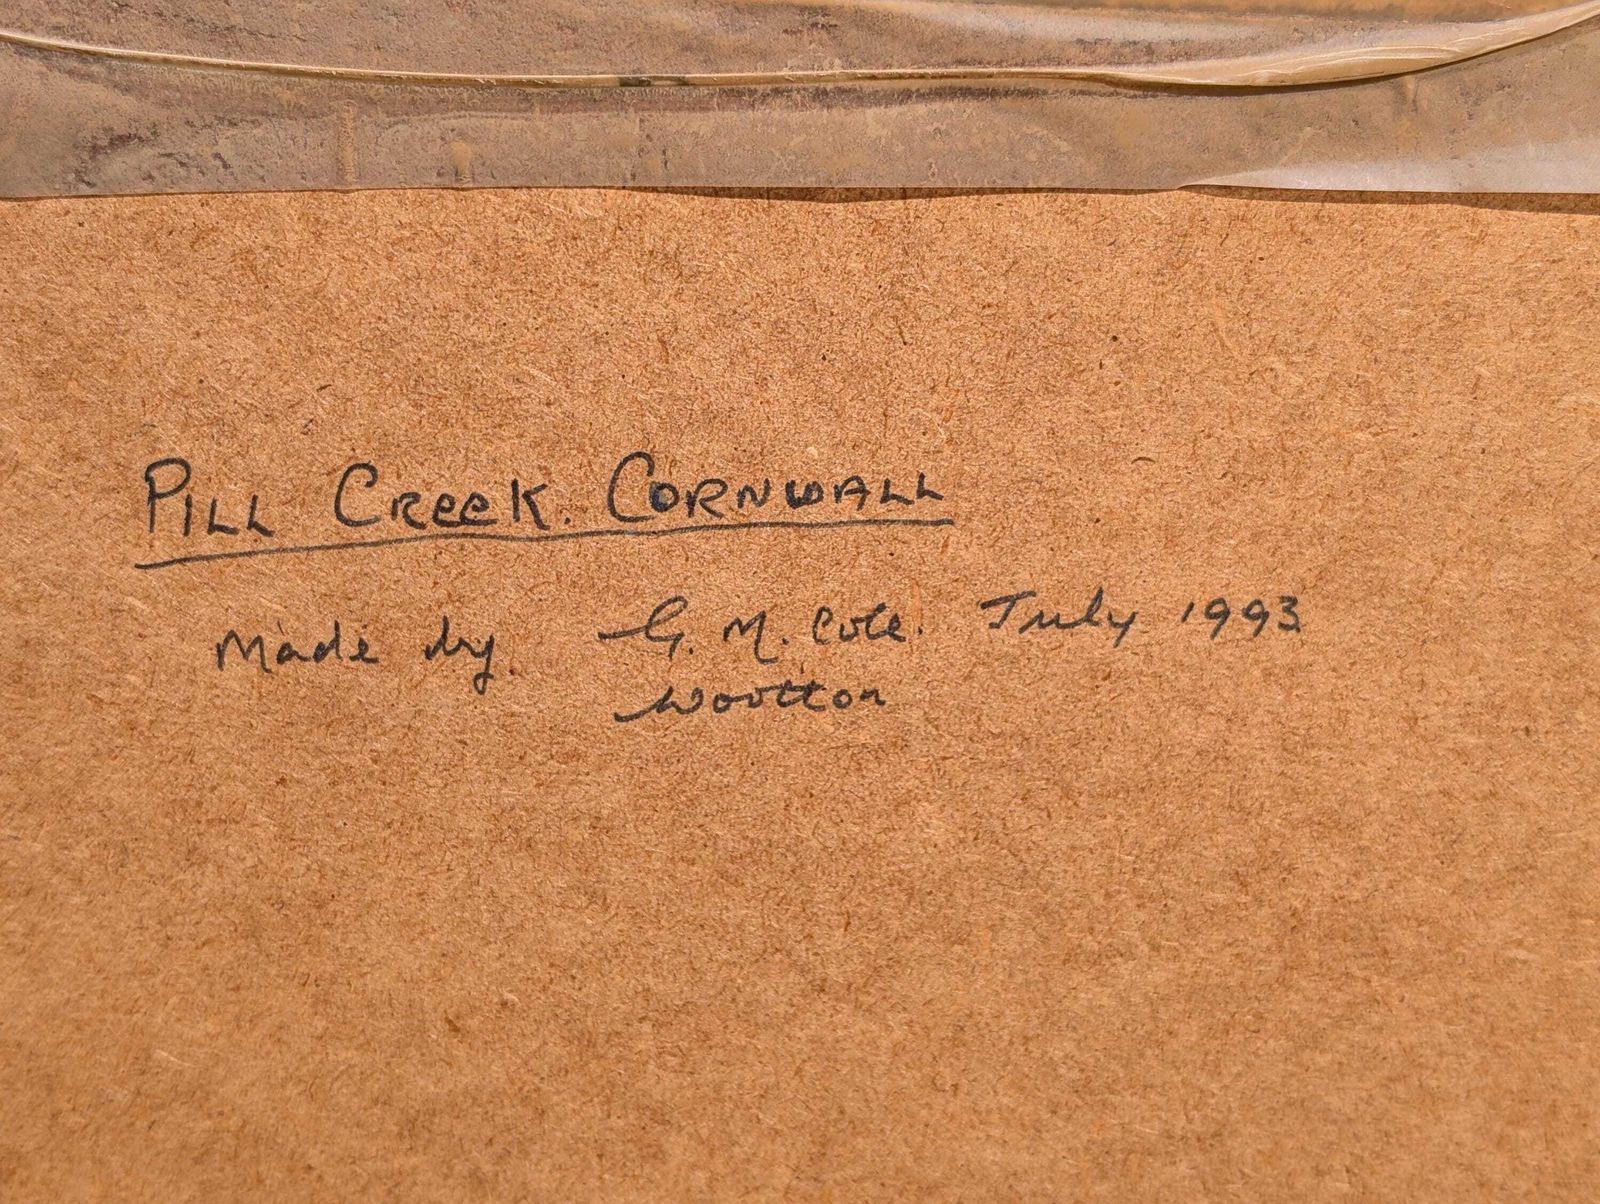 PILL CREEK. CORNWALL
Made by. G. M. Cole. July 1993
Wootton